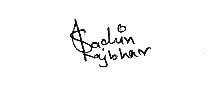 Sachin
Rajbhar